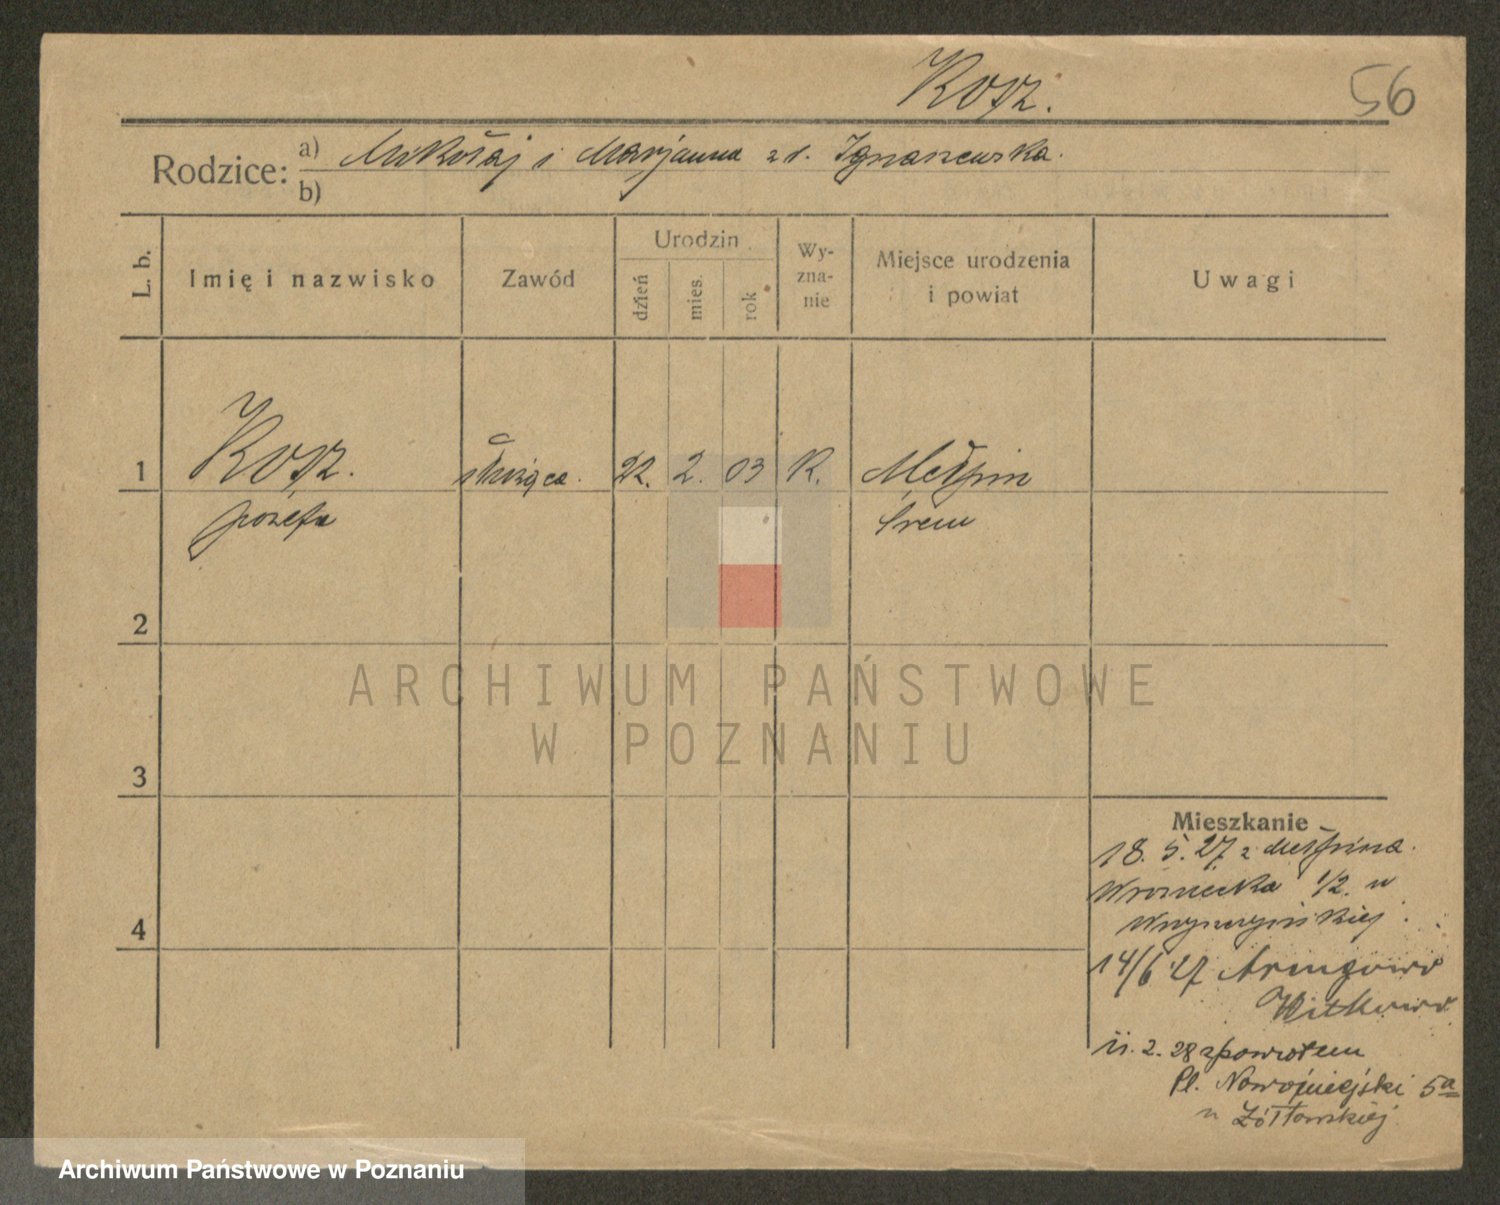 Kosz.
56
Rodzice: a) Mikołaj i Marjanna z d. Ignaszewska.
b)
L. b.
Imię i nazwisko
Zawód
Urodzin
dzień
mies.
rok
Wy-
zna-
nie
Miejsce urodzenia
i powiat
Uwagi
1
Kosz.
służąca.
22.
2.
03
K.
Mełpin
Józefa
Śrem
2
ARCHIWUM PAŃSTWOWE
W POZNANIU
3
Mieszkanie
18. 5. 27 z Mełpina.
1/2. u
4
14/6 27
Witkowo
11. 2. 28 zpowrotem
Pl. Nowomiejski 5a
u Żółtowskiej
Archiwum Państwowe w Poznaniu